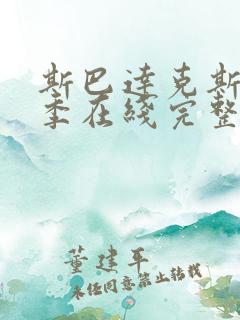 斯巴达克斯
季在线完整
董建平
未经同意禁止转载